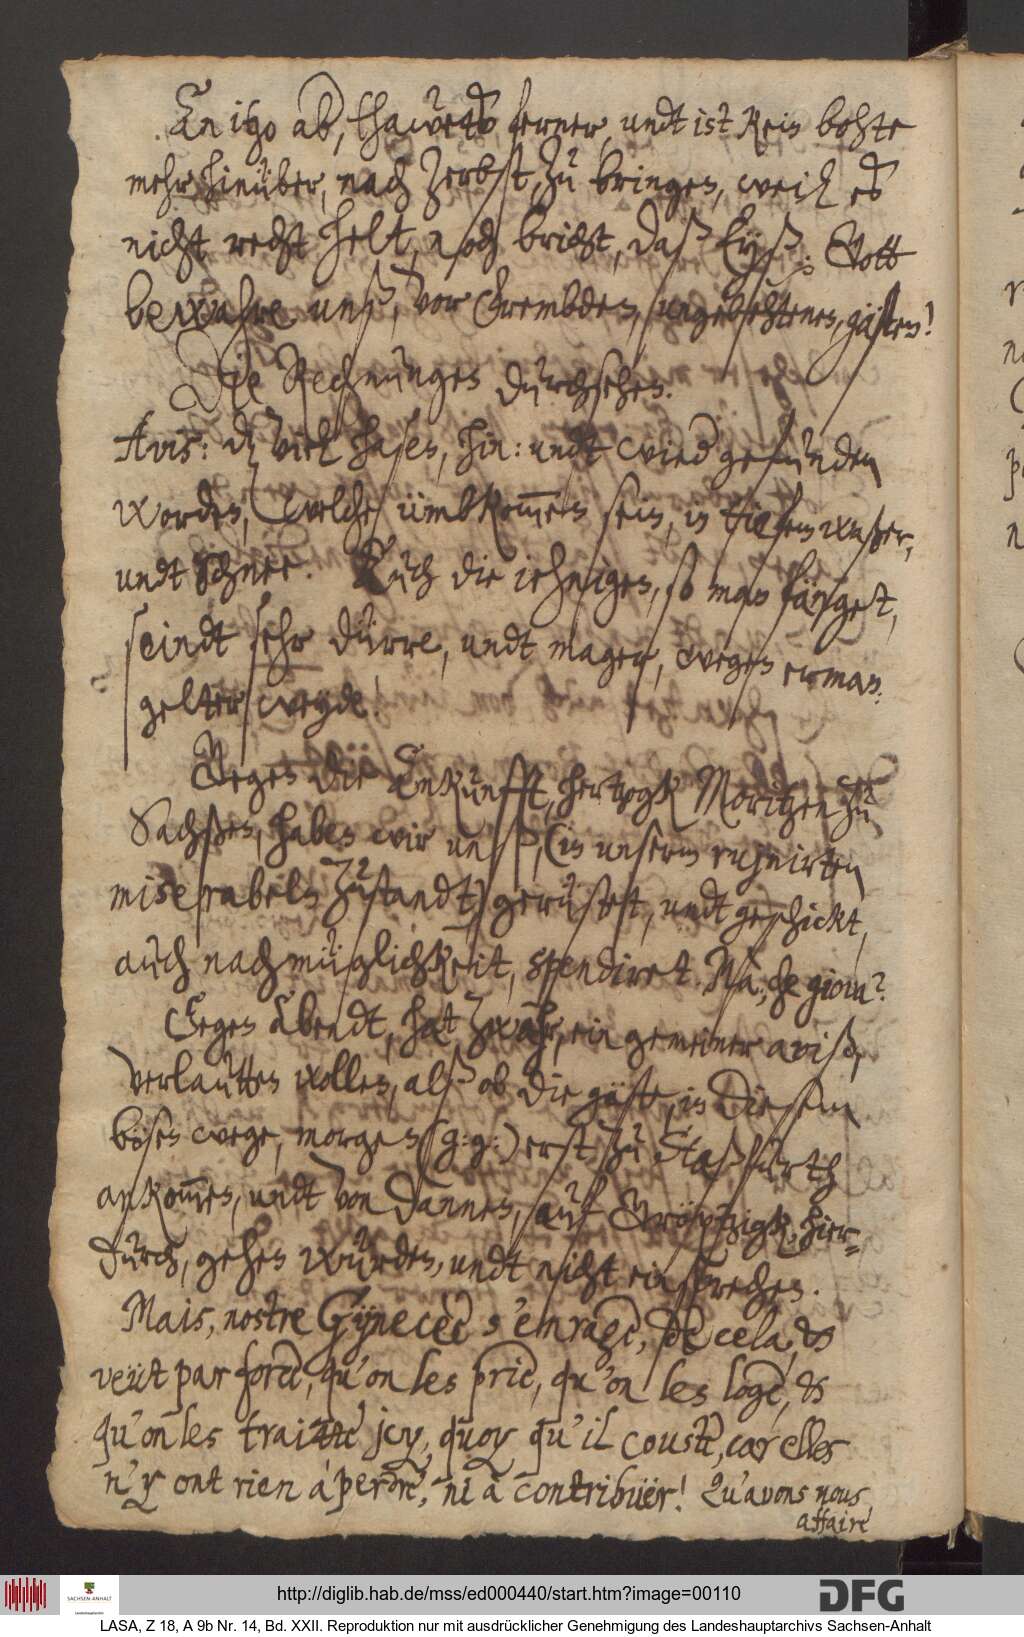 An itzo ab, thawets ferner, undt ist kein bohte
mehr hinüber, nach Zerbst, zu bringen, weil es
nicht recht helt, noch bricht, daß Eyß; Gott
bewahre unß, vor frembden, ungebehtenen, gästen!
Die Rechnungen durchsehen.
Avis: daß viel hasen, hin: undt wied gefunden
worden, welche ümbkommen sein, in tiefem waßer,
undt Schnee. Auch die iehnigen, so man fänget,
seindt sehr dürre, undt mager, wegen erman:
gelter weyde.
Gegen die Ankunfft, hertzogk Moritzen zu
Sachßen, haben wir unß, (in unserm ruhnirten
miserabeln zustandt) gerüstet, undt geschickt,
auch nach mügligkeit, spendiret. Ma, che giova?
Gegen Abendt, hat zwahr, ein gemeiner aviß,
verlautten wollen, alß ob die gäste, in diesem
bösen wege, morgen (g: g:) erst zu Staßfurth
ankommen, undt von dannen, auf Gröptzigk, hier-
durch, gehen würden, undt nicht einsprechen.
Mais, nostre Gÿnecèe s'enragè, de cela, &
veüt par force, qu'on les prie, qu'on les loge, &
qu'on les traitte icy, quoy qu'il couste, car elles
n'y ont rien à perdre, ni à contribuër! Qu'avons nous
affaire
http://diglib.hab.de/mss/ed000440/start.htm?image=00110
SACHSEN-ANHALT
DFG
LASA, Z 18, A 9b Nr. 14, Bd. XXII. Reproduktion nur mit ausdrücklicher Genehmigung des Landeshauptarchivs Sachsen-Anhalt